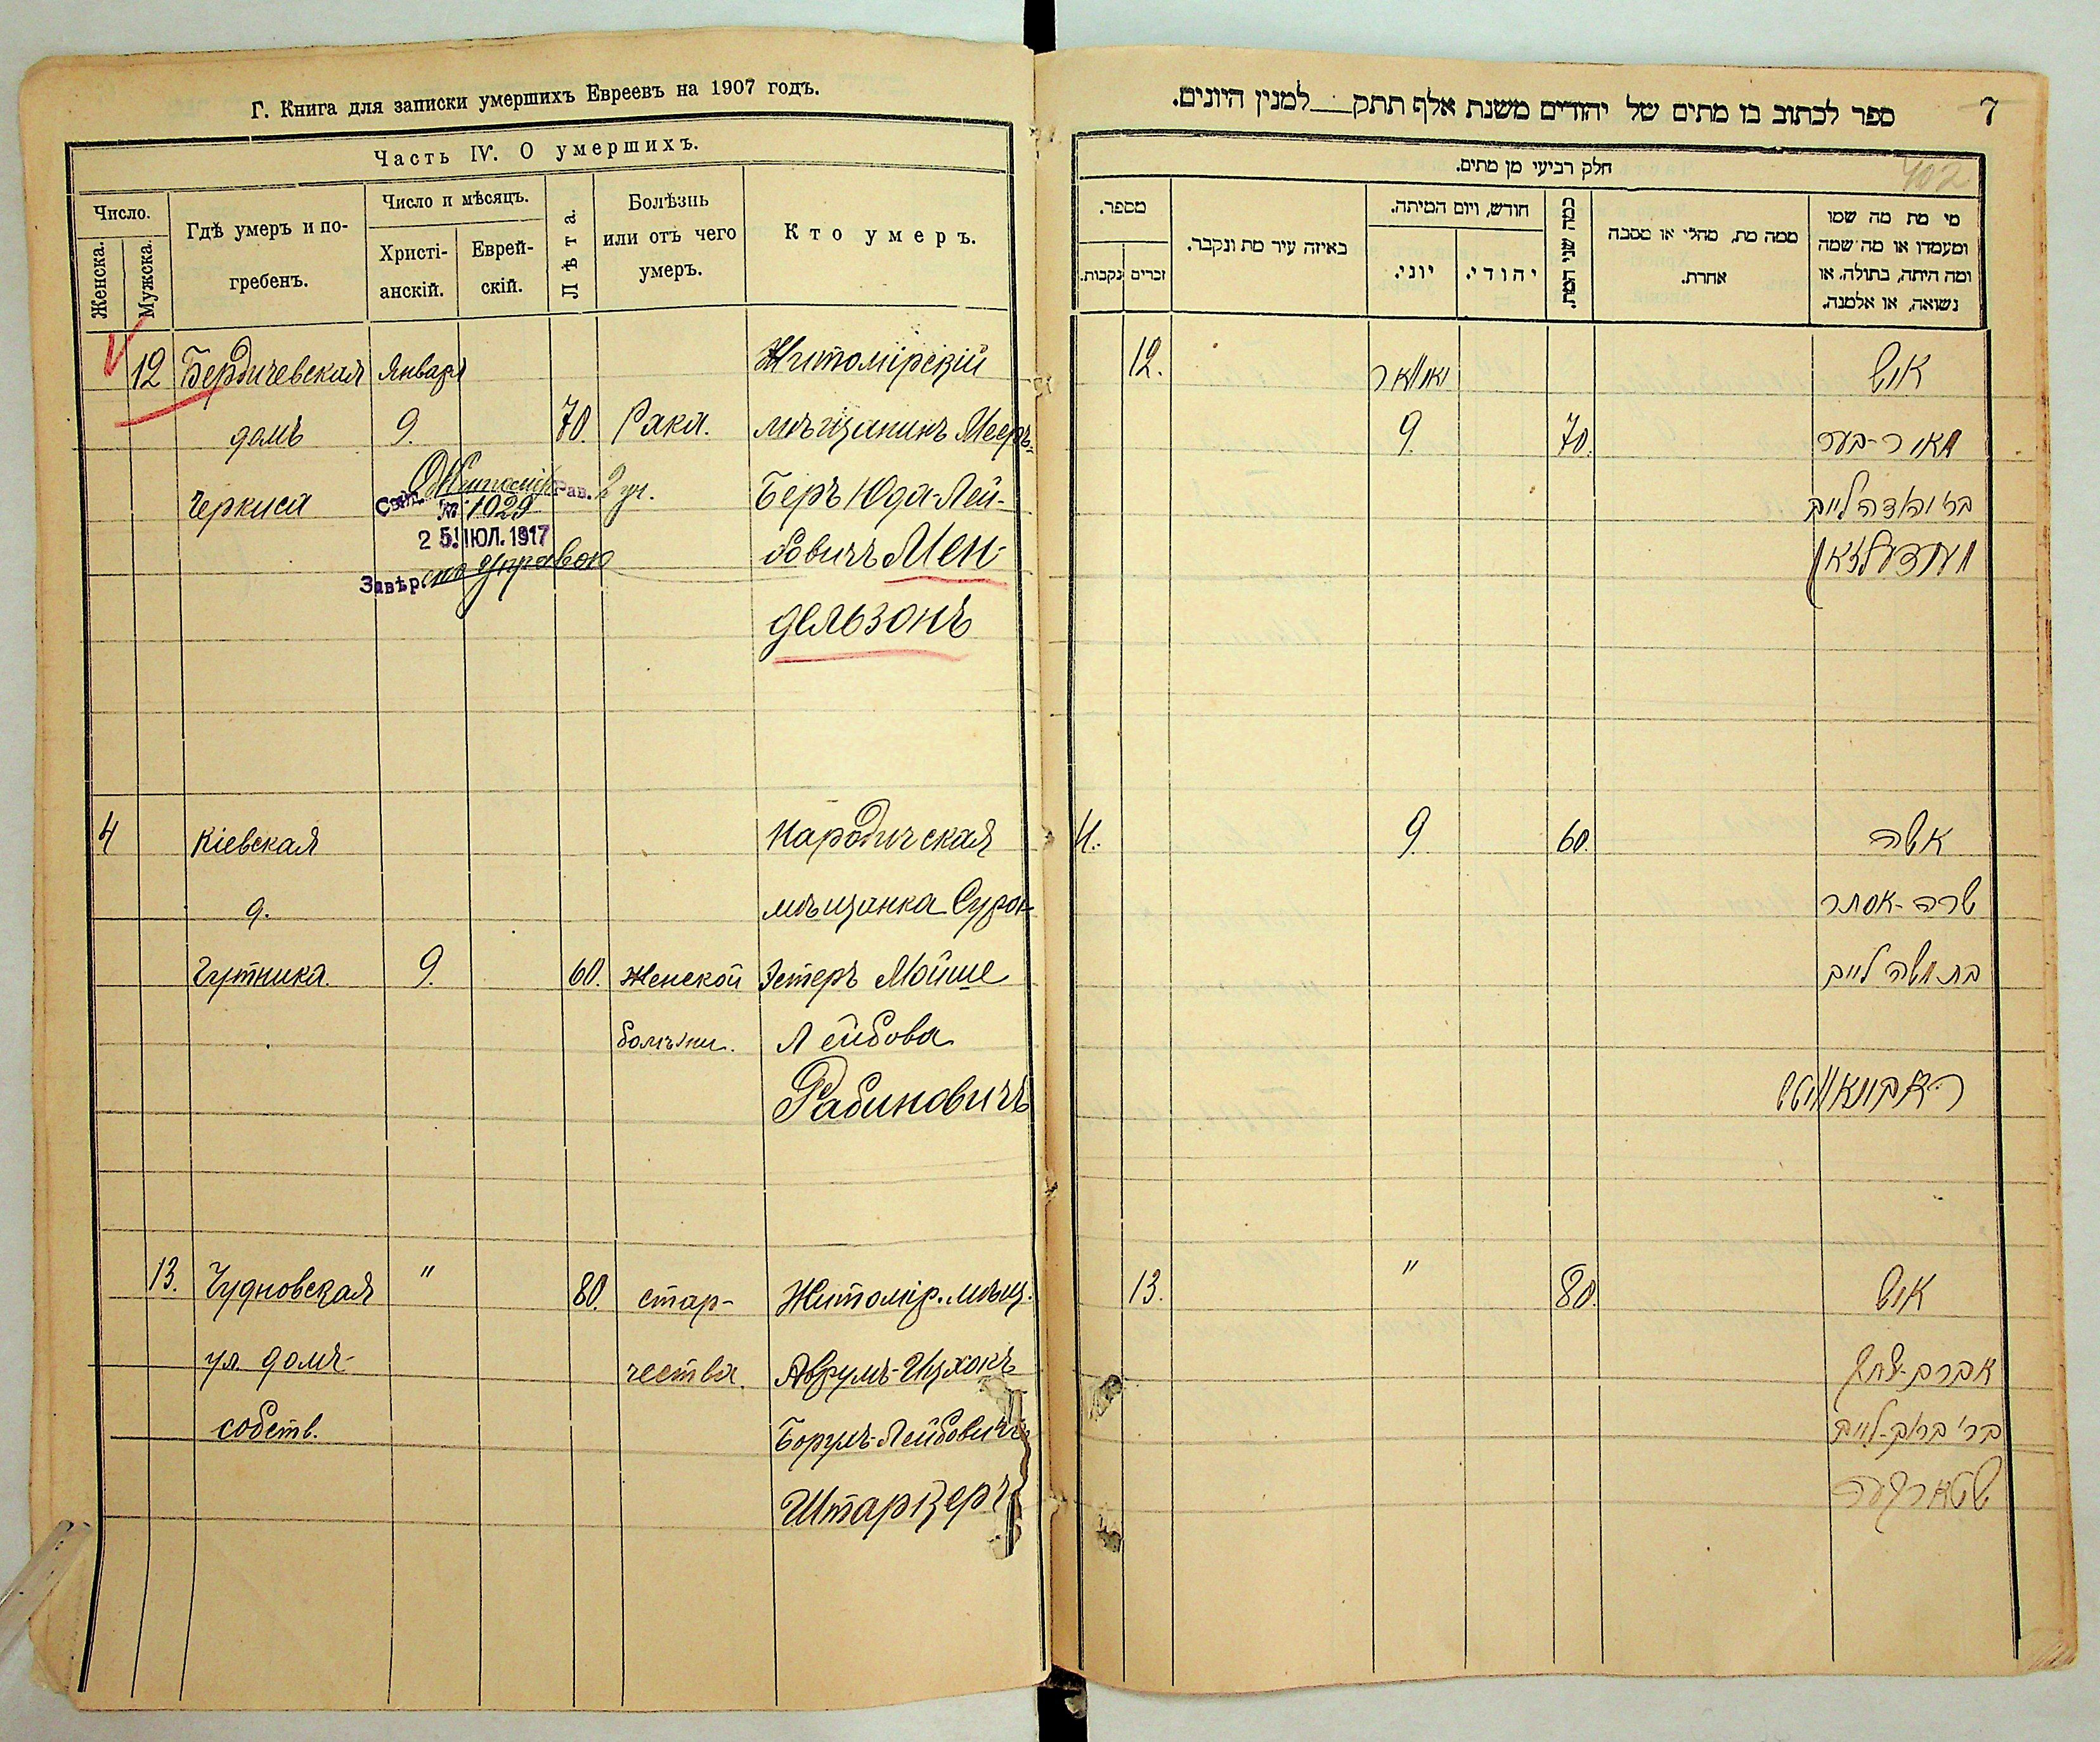 Г. Книга для записки умершихъ Евреевъ на 1907 годъ.
Часть IV. О умершихъ.
Число.
Женска.
Мужска.
Гдѣ умеръ и по-
гребенъ.
Число и мѣсяцъ.
Христі-
анскій.
Еврей-
скій.
Лѣта.
Болѣзнь
или отъ чего
умеръ.
Кто умеръ.
12 Бердичевская Января Житомірскій
домъ 9. 70. Рака. мѣщанинъ Мееръ-
Черкиса Беръ Юда-Лей-
Рав. 2 уч.
№ 1029
25 ІЮЛ. 1917
бовичъ Мен-
Завѣр Управою
дельзонъ
4 Кіевская Народичская
д. мѣщанка Сура-
Гутника. 9. 60. Женской Эстеръ Мойше
болѣзни. Лейбова
Рабиновичъ
13. Чудновская " 80. стар- Житомір. мѣщ.
ул. домъ чества. Аврумъ-Ицхокъ
собств. Борухъ-Лейбовичъ
Штаркеръ
ספר לכתוב בו מתים של יהודים משנת אלף תתק___למנין היונים.
7
402
חלק רביעי מן מתים.
מספר.
נקבות.
זכרים
באיזה עיר מת ונקבר.
חודש, ויום המיתה.
יוני.
יהודי.
כמה שני המת.
ממה מת, מחלי או מסבה
אחרת.
מי מת מה שמו
ומעמדו או מה שמה
ומה היתה, בתולה, או
נשואה, או אלמנה.
12. יאנואר איש
9. 70. מאיר-בער
בר' יודא לייב
מענדעלזאן
4. 9. 60. אשה
שרה-אסתר
בת משה לייב
ראבינאוויטש
13. " 80. איש
אברם-יצחק
בר' ברוך-לייב
שטארקער